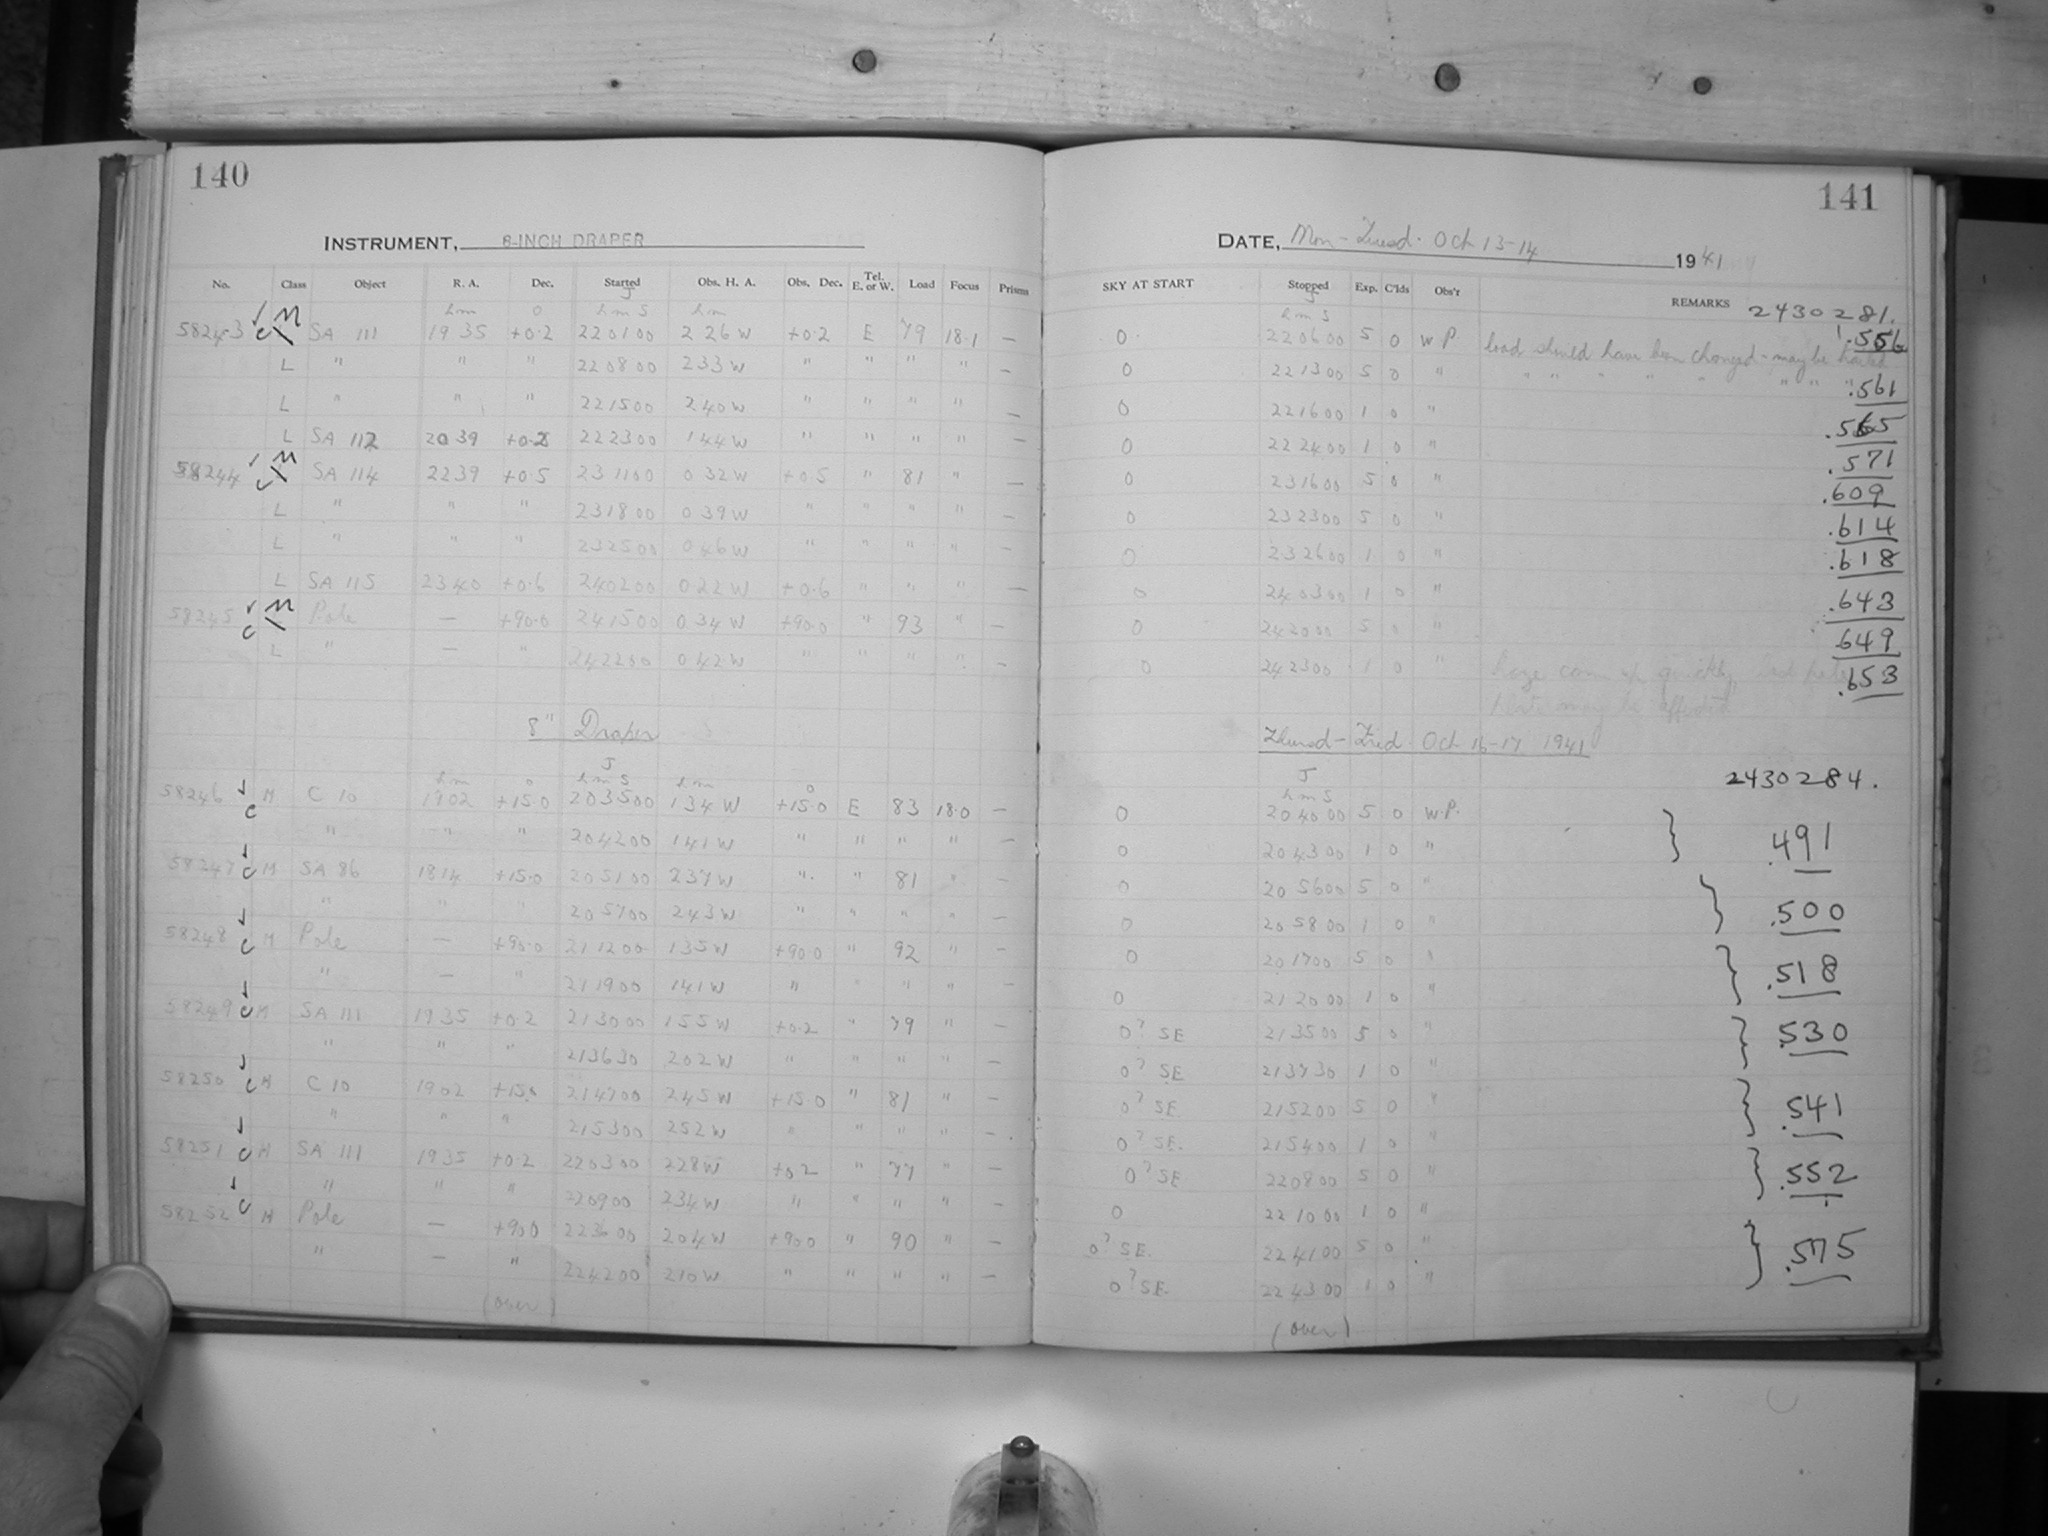 140
INSTRUMENT, 8-INCH DRAPER
No. Class Object R. A. Dec. Started Obs. H. A. Obs. Dec. Tel. E. or W. Load Focus Prisms
J
h m o h m s h m
58243 ✓ c M SA 111 19 35 +0.2 22 01 00 2 26 W +0.2 E 79 18.1 —
L " " " 22 08 00 2 33 W " " " " —
L " " " 22 15 00 2 40 W " " " " —
L SA 112 20 39 +0.2 22 23 00 1 44 W " " " " —
58244 ✓ c M SA 114 22 39 +0.5 23 11 00 0 32 W +0.5 " 81 " —
L " " " 23 18 00 0 39 W " " " " —
L " " " 23 25 00 0 46 W " " " " —
L SA 115 23 40 +0.6 24 02 00 0 22 W +0.6 " " " —
58245 ✓ c M Pole — +90.0 24 15 00 0 34 W +90.0 " 93 " —
L " — " 24 22 00 0 42 W " " " " —
8" Draper
J
h m o h m s h m o
58246 ✓ c M C 10 19 02 +15.0 20 35 00 1 34 W +15.0 E 83 18.0 —
" " " 20 42 00 1 41 W " " " " —
58247 ✓ c M SA 86 18 14 +15.0 20 51 00 2 37 W " " 81 " —
" " " 20 57 00 2 43 W " " " " —
58248 ✓ c M Pole — +90.0 21 12 00 1 35 W +90.0 " 92 " —
" — " 21 19 00 1 41 W " " " " —
58249 ✓ c M SA 111 19 35 +0.2 21 30 00 1 55 W +0.2 " 79 " —
" " " 21 36 30 2 02 W " " " " —
58250 ✓ c M C 10 19 02 +15.0 21 47 00 2 45 W +15.0 " 81 " —
" " " 21 53 00 2 52 W " " " " —
58251 ✓ c M SA 111 19 35 +0.2 22 03 00 2 28 W +0.2 " 77 " —
" " " 22 09 00 2 34 W " " " " —
58252 ✓ c M Pole — +90.0 22 36 00 2 04 W +90.0 " 90 " —
" — " 22 42 00 2 10 W " " " " —
(over)
141
DATE, Mon - Tuesd. Oct 13-14 1941
SKY AT START Stopped Exp. C'lds Obs'r REMARKS
J
h m s 2430281.
0 22 06 00 5 0 W.P. load should have been changed - may be .556
0 22 13 00 5 0 " " " " " " " " .561
0 22 16 00 1 0 " .565
0 22 24 00 1 0 " .571
0 23 16 00 5 0 " .609
0 23 23 00 5 0 " .614
0 23 26 00 1 0 " .618
0 24 03 00 1 0 " .643
0 24 20 00 5 0 " .649
0 24 23 00 1 0 " haze came up quickly .653
plate may be affected
Thursd - Frid. Oct 16-17 1941
J
h m s 2430284.
0 20 40 00 5 0 W.P.
0 20 43 00 1 0 " } .491
0 20 56 00 5 0 "
0 20 58 00 1 0 " } .500
0 20 17 00 5 0 "
0 21 20 00 1 0 " } .518
0? SE 21 35 00 5 0 "
0? SE 21 37 30 1 0 " } .530
0? SE. 21 52 00 5 0 "
0? SE. 21 54 00 1 0 " } .541
0? SE 22 08 00 5 0 "
0 22 10 00 1 0 " } .552
0? SE. 22 41 00 5 0 "
0? SE. 22 43 00 1 0 " } .575
(over)